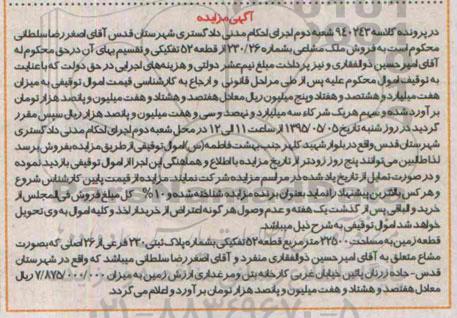 آگهی مزایده
در پرونده کلاسه ۹۴۰۲۴۳ شعبه دوم اجرای احکام مدنی دادگستری شهرستان قدس آقای اصغر رضا سلطانی
محکوم است به فروش ملک مشاعی بشماره ۲۳۰/۲۶ از قطعه ۵۲ تفکیکی و تقسیم بهای آن در حق محکوم له
آقای امیرحسین ذوالفقاری و نیز پرداخت مبلغ نیم عشر دولتی و هزینه‌های اجرایی در حق دولت که با عنایت
به توقیف اموال محکوم علیه پس از طی مراحل قانونی و ارجاع به کارشناسی قیمت اموال توقیفی به میزان
هفت میلیارد و هشتصد و هفتاد و پنج میلیون ریال معادل هفتصد و هشتاد و هفت میلیون و پانصد هزار تومان
بر آورد شده و سهم هر یک شرکاء سه میلیارد و نهصد و سی و هفت میلیون و پانصد هزار ریال سپس مقرر
گردید در روز شنبه تاریخ ۱۳۹۵/۰۵/۰۵ از ساعت ۱۱ الی ۱۲ در محل شعبه دوم اجرای احکام مدنی دادگستری
شهرستان قدس واقع در بلوار شهید کلهر جنب بهشت فاطمه (س) اموال توقیفی از طریق مزایده بفروش برسد
لذا طالبین می‌توانند پنج روز زودتر از تاریخ مزایده با اطلاع و هماهنگی این اجرا از اموال توقیفی بازدید نموده
و در صورت تمایل از تاریخ یاد شده در مراسم مزایده شرکت نمایند. مزایده از قیمت پایین کارشناس شروع
و هر کس بالاترین پیشنهاد را نماید بعنوان برنده مزایده شناخته شده و ۱۰% کل مبلغ فروش فی المجلس از
خرید و الباقی پس از گذشت یک هفته و عدم وصول هر گونه اعتراض از خریدار اخذ و کلیه اموال به وی تحویل
خواهد شد اموال توقیفی به شرح ذیل میباشد.
قطعه زمین به مساحت ۲۲۵۰۰ متر مربع قطعه ۵۲ تفکیکی بشماره پلاک ثبتی ۲۳۰ فرعی از ۲۶ اصلی که بصورت
مشاع متعلق به آقای امیر حسین ذوالفقاری منفرد و آقای اصغر رضا سلطانی میباشد که واقع در شهرستان
قدس - جاده زرنان پائین خیابان غربی کارخانه بتن و مرغداری ارزش زمین به میزان ۷/۸۷۵/۰۰۰/۰۰۰ ریال
معادل هفتصد و هشتاد و هفت میلیون و پانصد هزار تومان بر آورد و اعلام می گردد.
۰۲۱-۸۸۳۴۹۶۷۰-۵